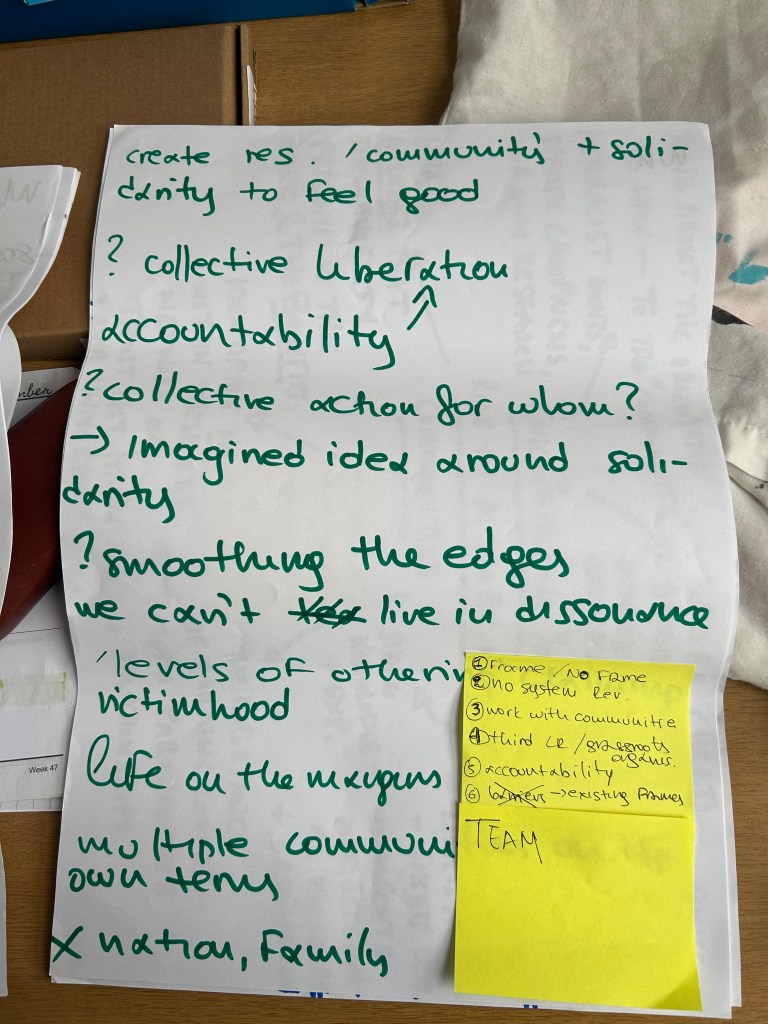 create res. / community + soli-
darity to feel good
? collective liberation
accountability ↗
? collective action for whom?
→ Imagined idea around soli-
darity
? smoothing the edges
we can't live in dissonance
/levels of otherin
victimhood
life on the margins
multiple communi
own terms
X nation, Family
① Frame / No Frame
② no system Rev.
③ work with communitie
④ third / grassroots
organis.
⑤ accountability
⑥ barriers → existing Frames
TEAM
mber
Week 47